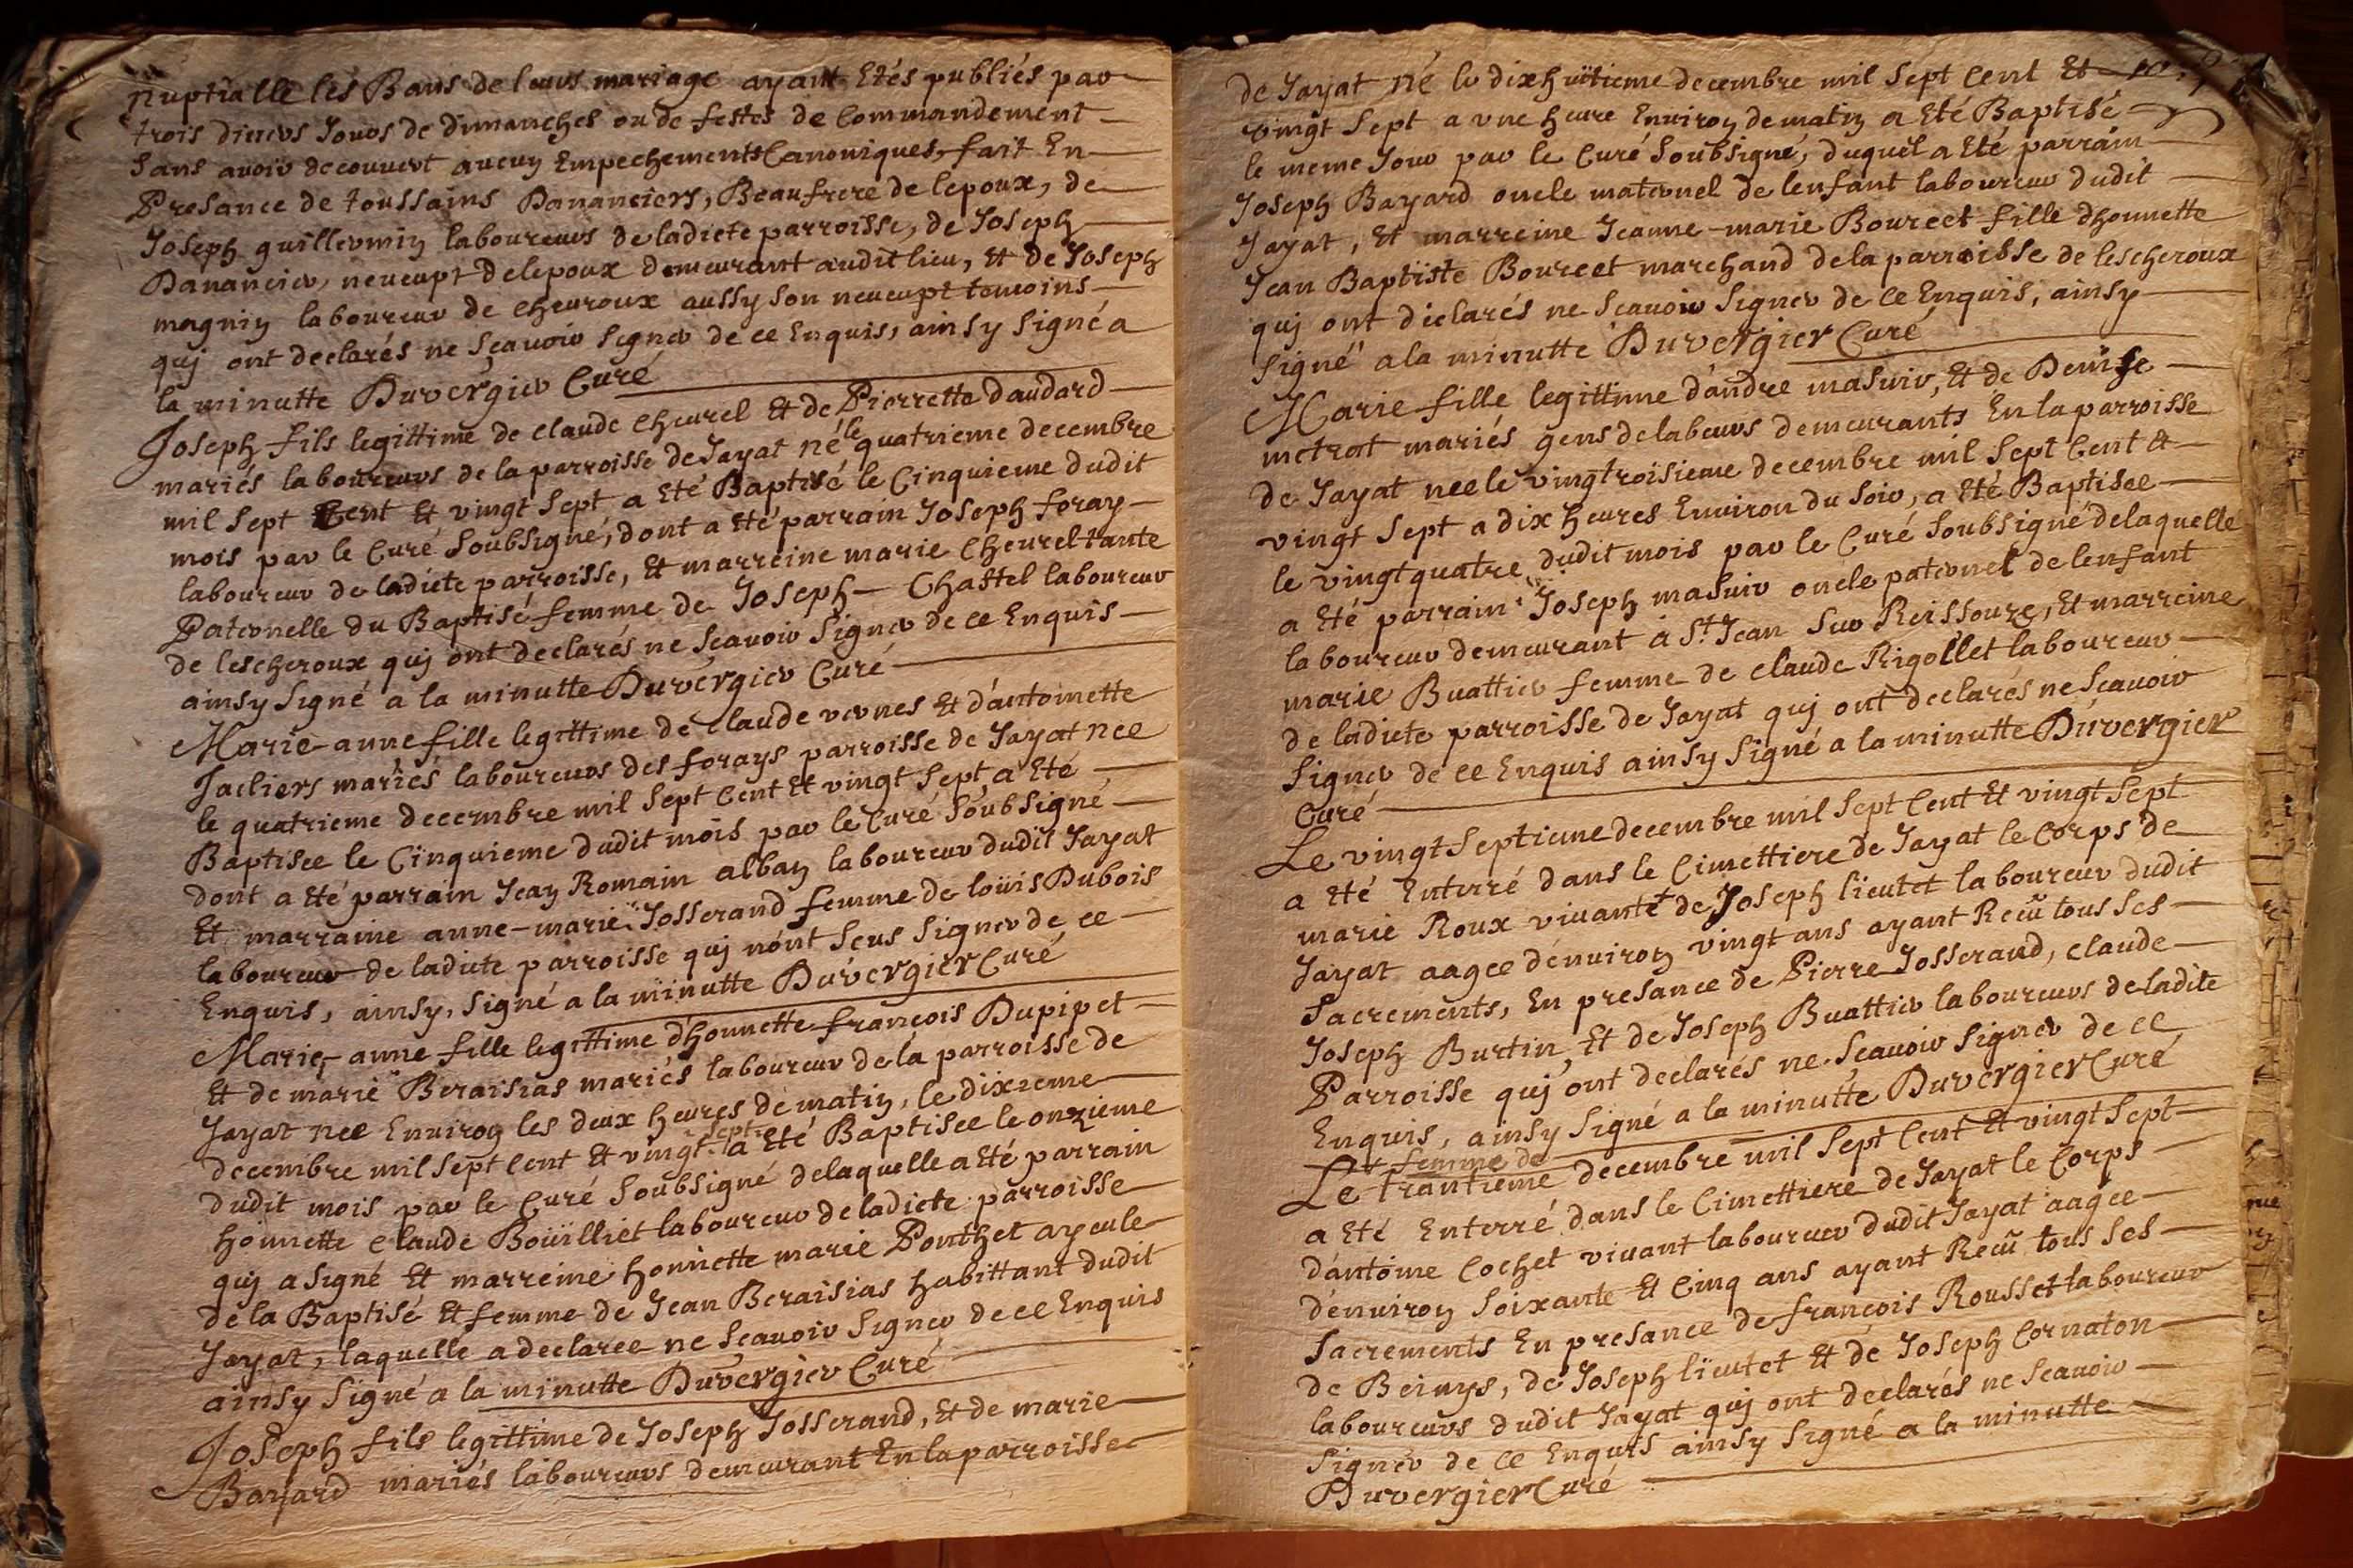 nuptialle les Bans de leurs mariage ayant Etés publiés par
trois divers Jours de dimanches ou de festes de Commandement
Sans avoir decouvert aucun Empechements Canoniques, fait En
Presance de toussains Dananciers, Beaufrere de lepoux, de
Joseph guillermin laboureurs de ladicte parroisse, de Joseph
Danancier, neveupt de lepoux demeurant audit lieu, Et de Joseph
magnin laboureur de chevroux aussy son neveupt temoins
quj ont declarés ne Sçavoir signer de ce Enquis, ainsy signé a
la minutte Duvergier Curé
Joseph fils legittime de claude chevrel Et de Pierrette daudard
mariés laboureurs de la parroisse de Jayat né le quatrieme decembre
mil Sept Cent Et vingt Sept a Eté Baptisé le Cinquieme dudit
mois par le Curé Soubsigné, dont a Eté parrain Joseph foray
laboureur de ladicte parroisse, Et marreine marie Chevrel tante
Paternelle du Baptisé femme de Joseph Chastel laboureur
de lescheroux quj ont declarés ne Scavoir Signer de ce Enquis
ainsy Signé a la minutte Duvergier Curé
Marie-anne fille legittime de claude vernes Et d'antoinette
Jacliers mariés laboureurs des forays parroisse de Jayat nee
le quatrieme decembre mil Sept Cent Et vingt Sept, a Eté
Baptisee le Cinquieme dudit mois par le Curé Soubsigné
dont a Eté parrain Jean Romain alban laboureur dudit Jayat
Et marraine anne-marie Josserand femme de loüis Dubois
laboureur de ladicte parroisse quj n'ont Seus Signer de ce
Enquis, ainsy, Signé a la minutte Duvergier Curé
Marie-anne fille legittime d'honnette françois Dupipet
Et de marie Beraisias mariés laboureur de la parroisse de
Jayat nee Environ les deux heures de matin, le dixieme
decembre mil Sept Cent Et vingt Sept a Eté Baptisee le onzieme
dudit mois par le Curé Soubsigné de laquelle a Eté parrain
honnette claude Boüilliet laboureur de ladicte parroisse
quj a Signé Et marreine honnette marie Ponthet ayeule
de la Baptisé Et femme de Jean Beraisias habittant dudit
Jayat, laquelle a declaree ne Scavoir Signer de ce Enquis
ainsy Signé a la minutte Duvergier Curé
Joseph fils legittime de Joseph Josserand, Et de marie
Bayard mariés laboureurs demeurant En la parroisse
de Jayat né le dixhuitieme decembre mil Sept Cent Et
vingt Sept a une heure Environ de matin a Eté Baptisé
le meme Jour par le Curé Soubsigné, duquel a Eté parrain
Joseph Bayard oncle maternel de lenfant laboureur dudit
Jayat, Et marreine Jeanne-marie Bourcet fille d'honnette
Jean Baptiste Bourcet marchand de la parroisse de lescheroux
quj ont declarés ne Scavoir Signer de Ce Enquis, ainsy
Signé a la minutte Duvergier Curé
Marie fille legittime d'andre masuir, Et de Denise
metrat mariés gens de labeurs demeurants En la parroisse
de Jayat nee le vingtroisieme decembre mil Sept Cent Et
vingt Sept a dix heures Environ du Soir, a Eté Baptisee
le vingtquatre dudit mois par le Curé Soubsigné de laquelle
a Eté parrain Joseph masuir oncle paternel de lenfant
laboureur demeurant à St Jean Sur Reissouze, Et marreine
marie Buattier femme de claude Rigollet laboureur
de ladicte parroisse de Jayat quj ont declarés ne Scavoir
Signer de ce Enquis ainsy Signé a la minutte Duvergier
Curé
Le vingt Septieme decembre mil Sept Cent Et vingt Sept
a Eté Enterré dans le Cimettiere de Jayat le Corps de
marie Roux vivante + de Joseph lieutet laboureur dudit
Jayat aagee d'environ vingt ans ayant Reçû tous Ses
Sacrements, En presance de Pierre Josserand, claude
Joseph Burtin, Et de Joseph Buattier laboureurs de ladite
Parroisse quj ont declarés ne Scavoir Signer de ce
Enquis, ainsy Signé a la minutte Duvergier Curé
+ femme de
Le trantieme decembre mil Sept Cent Et vingt Sept
a Eté Enterré dans le Cimettiere de Jayat le Corps
d'antoine Cochet vivant laboureur dudit Jayat aagee
d'environ Soixante Et Cinq ans ayant Reçû tous Ses
Sacrements En presance de françois Rousset laboureur
de Beinys, de Joseph lieutet Et de Joseph Cornaton
laboureurs dudit Jayat quj ont declarés ne Scavoir
Signer de Ce Enquis ainsy Signé a la minutte
Duvergier Curé